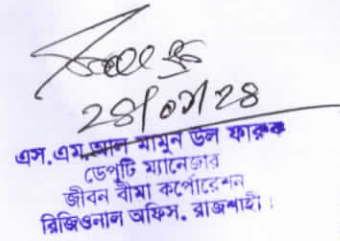 ২৪/০৭/২৪
এস.এম.আল মামুন উল ফারুক
ডেপুটি ম্যানেজার
জীবন বীমা কর্পোরেশন
রিজিওনাল অফিস, রাজশাহী।